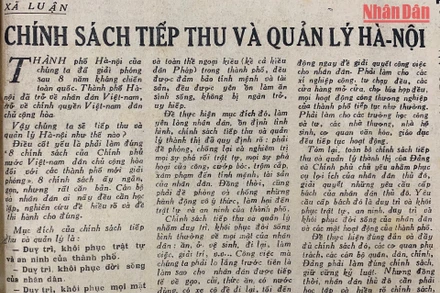 XÃ LUẬN
Nhân Dân
CHÍNH SÁCH TIẾP THU VÀ QUẢN LÝ HÀ-NỘI
THÀNH phố Hà-nội của
chúng ta đã giải phóng
sau 8 năm kháng chiến
toàn quốc. Thành phố Hà-
nội đã trở về nhân dân Việt-nam,
trở về chính quyền Việt-nam dân
chủ cộng hòa.
Vậy chúng ta sẽ tiếp thu và
quản lý Hà-nội như thế nào?
Điều cốt yếu là phải làm đúng
8 chính sách của Chính phủ
nước Việt-nam dân chủ cộng hòa
đối với các thành phố mới giải
phóng. 8 chính sách ấy ngắn,
gọn, nhưng rất căn bản. Cán bộ
và nhân dân ai nấy đều cần học
tập, nghiên cứu để hiểu rõ và để
thi hành cho đúng.
Mục đích của chính sách tiếp
thu và quản lý là:
— Duy trì, khôi phục trật tự
và an ninh của thành phố.
— Duy trì, khôi phục đời sống
của nhân dân.
— Duy trì, khôi phục mọi mặt
và toàn thể ngoại kiều (kể cả kiều
dân Pháp) trong thành phố, đều
được đảm bảo tính mệnh và tài
sản, đều được yên ổn làm ăn
sinh sống, không bị ngăn trở,
uy hiếp.
Để thực hiện mục đích đó, làm
yên lòng nhân dân, ổn định tình
hình, chính sách tiếp thu và quản lý
thành thị đã quy định rõ: phải
đề phòng, chống lại và nghiêm trị
mọi sự phá rối trật tự, mọi sự phá
hoại của công, cướp bóc, trộm cắp,
xâm phạm đến tính mệnh, tài sản
của nhân dân. Đồng thời, cũng
phải đề phòng cả những những
hành động có ý thức, làm hại đến
trật tự và an ninh của thành phố.
Chính sách tiếp thu và quản lý
nhằm duy trì, khôi phục đời sống
bình thường về mọi mặt của nhân
dân: ăn, ở, vệ sinh, đi lại, làm
việc, giải trí, v.v... Công việc mà
chúng ta phải lo lắng trước tiên là
làm sao cho nhân dân được tiếp
tục có điện, có nước dùng,
có xe cộ để đi lại, tối đến
động ngay để giải quyết công việc
cho nhân dân. Phải làm cho các
xí nghiệp công, tư chạy đều, các
cửa hàng mở cửa, chợ búa họp đều,
mọi hoạt động công thương nghiệp
của thành phố tiếp tục như thường.
Phải làm cho các trường học công,
tư, các nhà thương, nhà hộ
sinh, cơ quan văn hóa, giáo dục
đều tiếp tục hoạt động.
Tóm lại, toàn bộ chính sách tiếp
thu và quản lý thành thị của Đảng
và Chính phủ chú yếu nhằm phục
vụ đời sống của nhân dân thủ đô,
giải quyết những yêu cầu cấp
bách của nhân dân thủ đô. Yêu
cầu cấp bách ấy là duy trì và khôi
phục trật tự, an ninh, duy trì và
khôi phục đời sống của nhân dân
và các mặt hoạt động của thành phố.
Để thực hiện đúng đắn và đầy
đủ chính sách đó, các cơ quan phụ
trách, các cán bộ quân, dân, chính,
Đảng phải làm đúng chính sách,
giữ vững kỷ luật. Nhưng đồng
thời, nhân dân trong thành phố